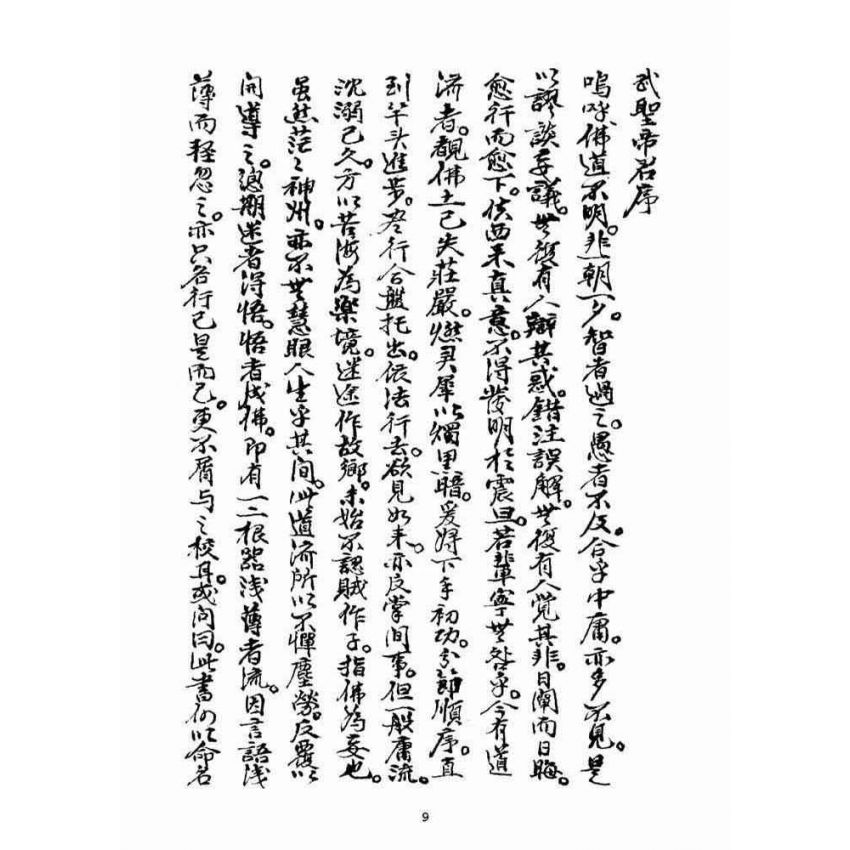 武聖帝君序
嗚呼。佛道不明。非一朝一夕。智者過之。愚者不及。合乎中庸。亦多不見。是
以謬談妄議。無復有人辯其惑。錯注誤解。無復有人覺其非。日闡而日晦。
愈行而愈下。使西來真意。不得發明於震旦。若輩寧無咎乎。今有道
濟者。覩佛土已失莊嚴。燃尹犀以燭里暗。爰將下手初功。分節順序。直
到竿头進步。卷行合盤托出。依法行去。欲見如来。亦反掌间事。但一般庸流。
沈溺已久。方以苦海為樂境。迷途作故鄉。未始不認賊作子。指佛為妄也。
虽然茫々神州。亦不無慧眼人生乎其间。此道濟所以不憚塵勞。反覆以
闲導之。總期迷者得悟。悟者成佛。即有一二根器浅薄者流。因言語浅
薄而轻忽之。亦只各行已是而已。更不屑与之校耳。或问曰。此書何以命名
9